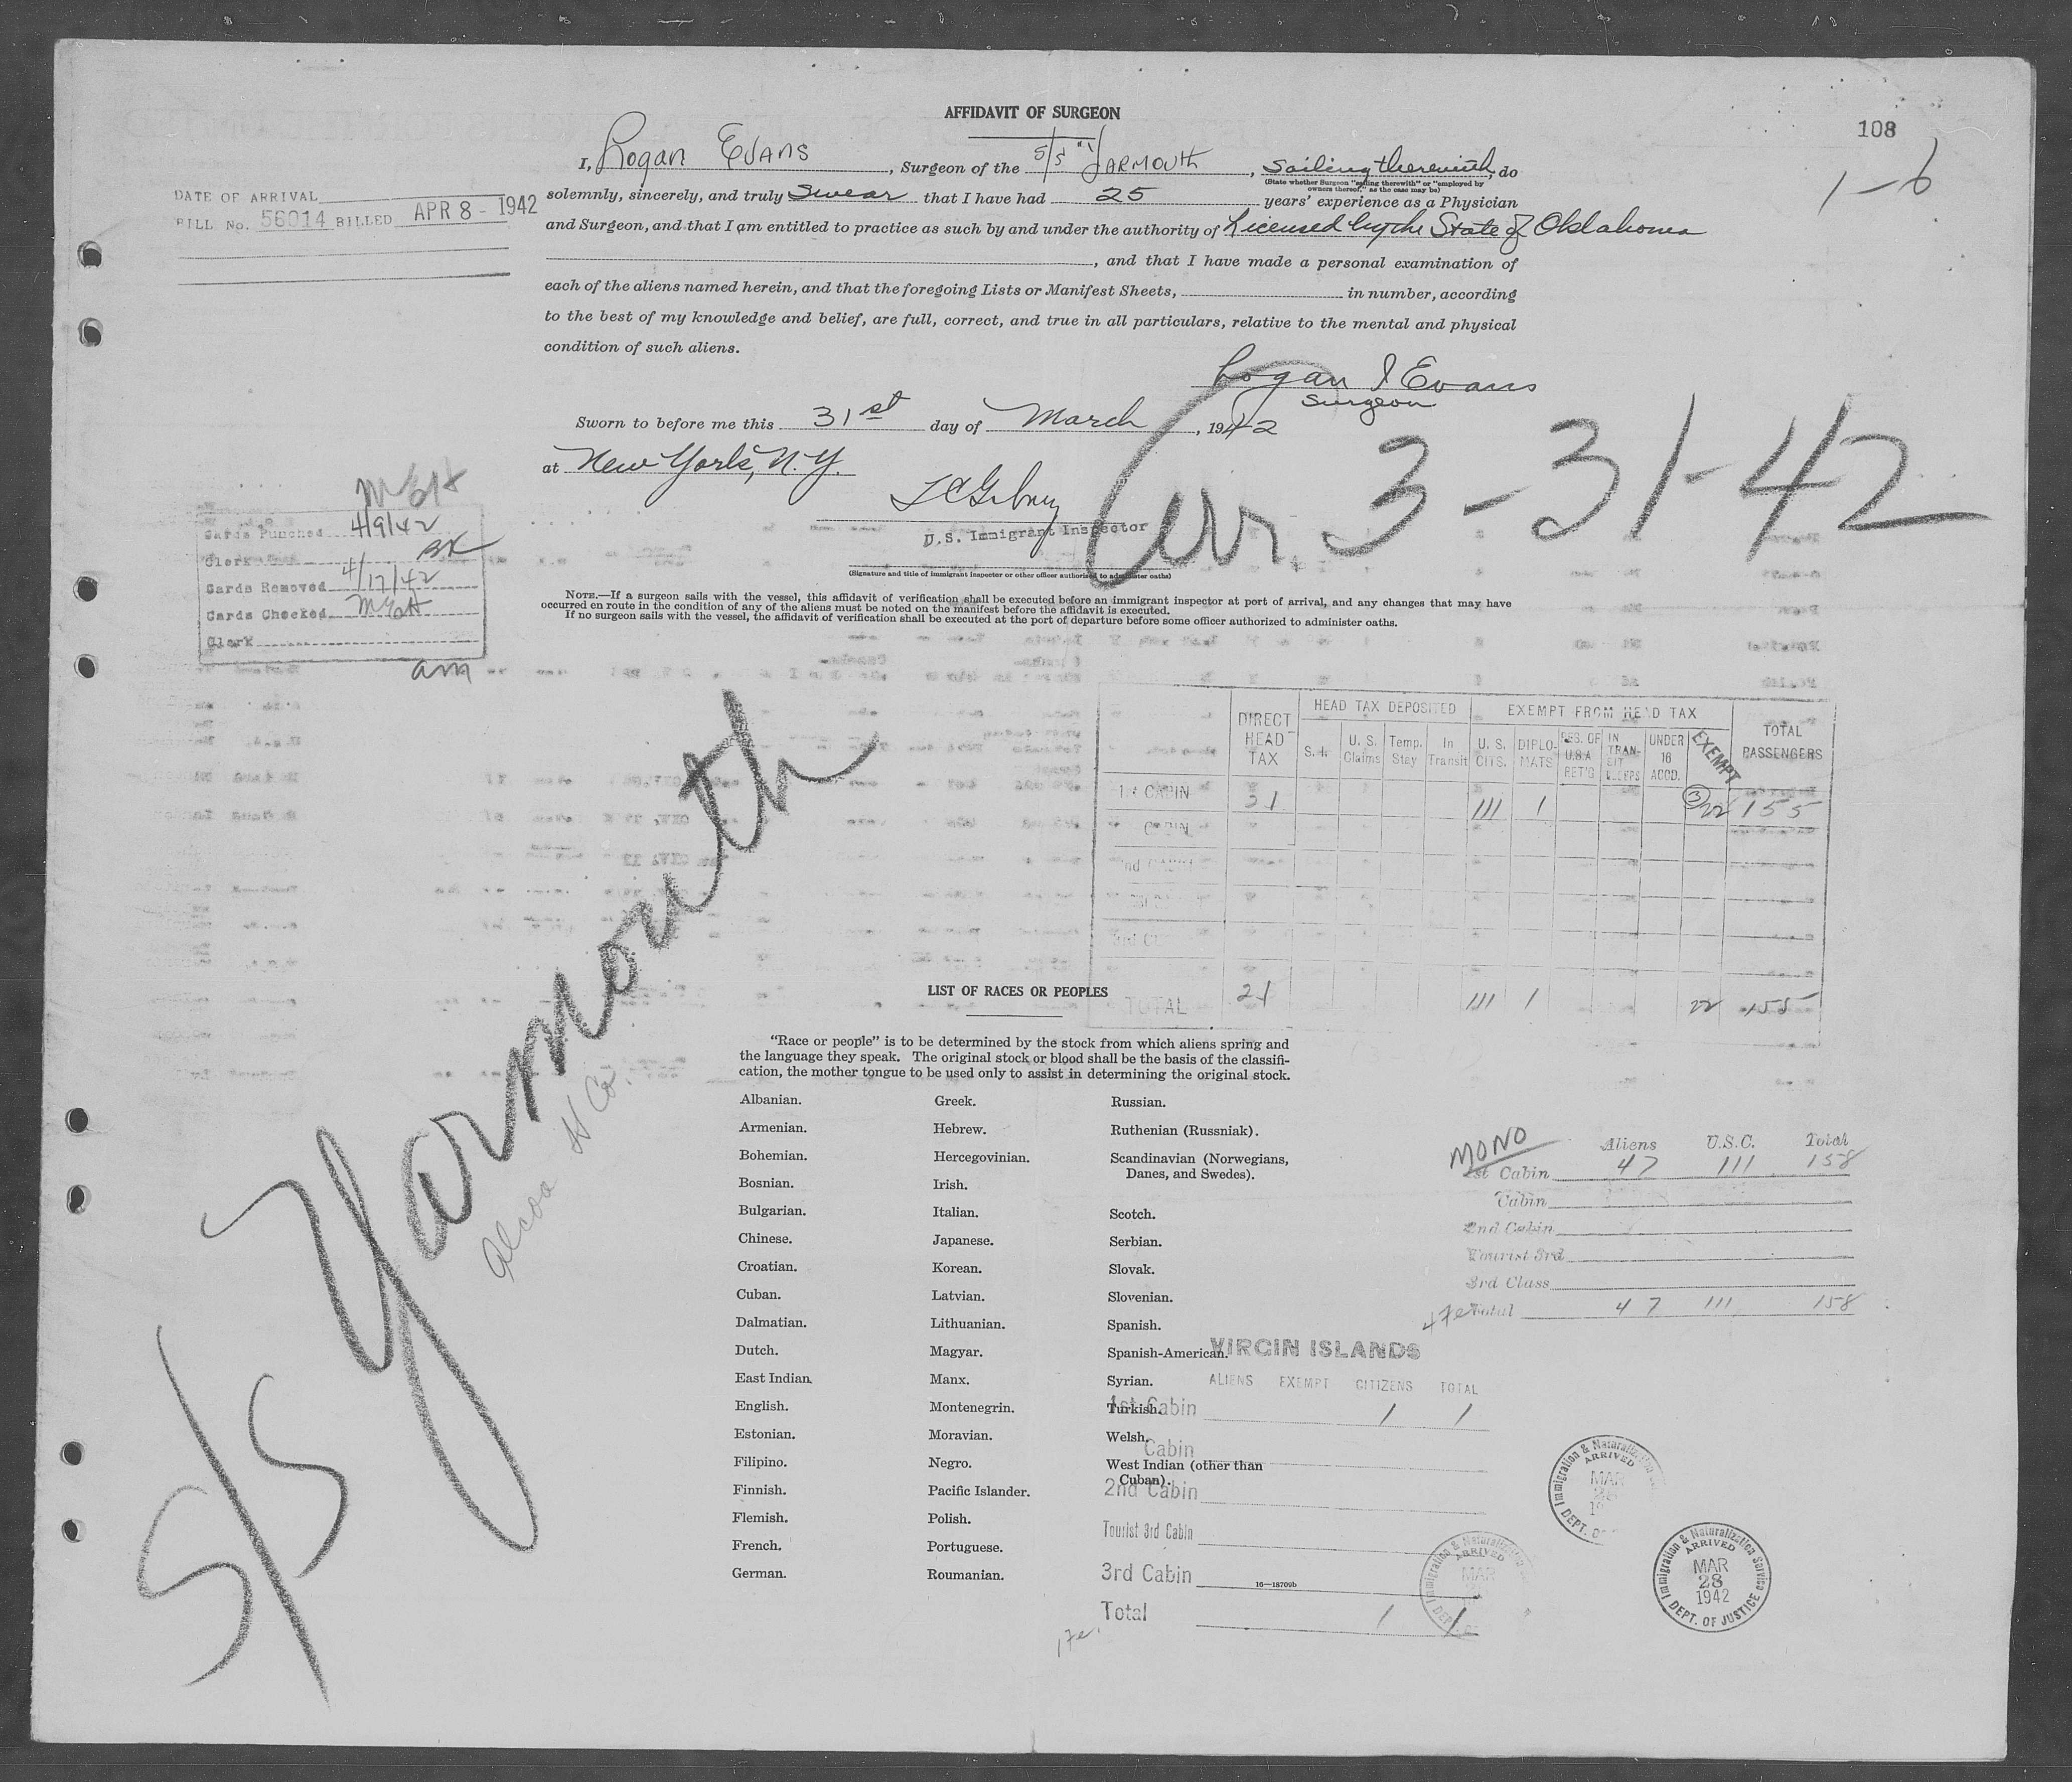 AFFIDAVIT OF SURGEON
108
1-6
I, Logan Evans, Surgeon of the S/S "Yarmouth, Sailing therewith, do
(State whether Surgeon "sailing therewith" or "employed by
owners thereof," as the case may be)
solemnly, sincerely, and truly swear that I have had 25 years' experience as a Physician
and Surgeon, and that I am entitled to practice as such by and under the authority of Licensed by the State of Oklahoma
, and that I have made a personal examination of
each of the aliens named herein, and that the foregoing Lists or Manifest Sheets, in number, according
to the best of my knowledge and belief, are full, correct, and true in all particulars, relative to the mental and physical
condition of such aliens.
DATE OF ARRIVAL
BILL No. 56014 BILLED APR 8 - 1942
Logan I Evans
Surgeon
Sworn to before me this 31st day of March, 1942
at New York, N.Y.
U.S. Immigrant Inspector
(Signature and title of immigrant inspector or other officer authorized to administer oaths)
Arr. 3-31-42
Cards Punched 4/9/42
Clerk
Cards Removed 4/17/42
Cards Checked
Clerk
am
NOTE.—If a surgeon sails with the vessel, this affidavit of verification shall be executed before an immigrant inspector at port of arrival, and any changes that may have
occurred en route in the condition of any of the aliens must be noted on the manifest before the affidavit is executed.
If no surgeon sails with the vessel, the affidavit of verification shall be executed at the port of departure before some officer authorized to administer oaths.
S/S Yarmouth
Alcoa
DIRECT HEAD TAX
HEAD TAX DEPOSITED
EXEMPT FROM HEAD TAX
TOTAL PASSENGERS
U. S. Claims
Temp. Stay
In Transit
U. S. CITS.
DIPLOMATS
RES. OF U.S.A RET'G
UNDER 16 ACCD.
EXEMPT
1st CABIN 21 111 1 3 22 155
CABIN
2nd CABIN
TOTAL 21 111 1 22 155
LIST OF RACES OR PEOPLES
"Race or people" is to be determined by the stock from which aliens spring and
the language they speak. The original stock or blood shall be the basis of the classifi-
cation, the mother tongue to be used only to assist in determining the original stock.
Albanian.
Armenian.
Bohemian.
Bosnian.
Bulgarian.
Chinese.
Croatian.
Cuban.
Dalmatian.
Dutch.
East Indian.
English.
Estonian.
Filipino.
Finnish.
Flemish.
French.
German.
Greek.
Hebrew.
Hercegovinian.
Irish.
Italian.
Japanese.
Korean.
Latvian.
Lithuanian.
Magyar.
Manx.
Montenegrin.
Moravian.
Negro.
Pacific Islander.
Polish.
Portuguese.
Roumanian.
Russian.
Ruthenian (Russniak).
Scandinavian (Norwegians,
Danes, and Swedes).
Scotch.
Serbian.
Slovak.
Slovenian.
Spanish.
Spanish-American.
Syrian.
Turkish.
Welsh.
West Indian (other than
Cuban).
16—18709b
MONO
Aliens U.S.C. Total
1st Cabin 47 111 158
Cabin
2nd Cabin
Tourist 3rd
3rd Class
Total 47 111 158
VIRGIN ISLANDS
ALIENS EXEMPT CITIZENS TOTAL
1st Cabin 1 1
Cabin
2nd Cabin
Tourist 3rd Cabin
3rd Cabin
Total 1 1
Immigration & Naturalization
ARRIVED
MAR
DEPT.
Immigration & Naturalization
ARRIVED
MAR
DEPT.
Immigration & Naturalization Service
ARRIVED
MAR
28
1942
DEPT. OF JUSTICE